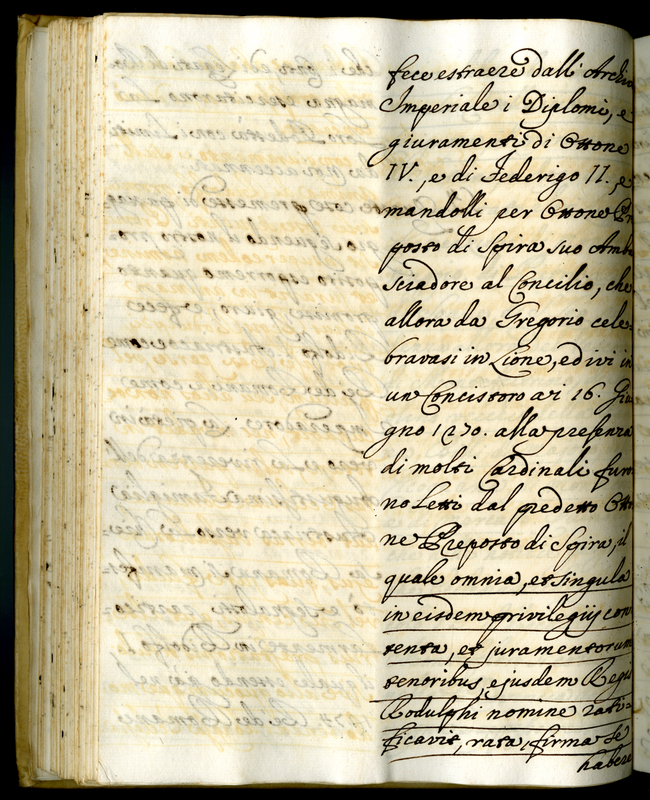 fece estraere dall' Archivi
Imperiale i Diplomi, e
giuramenti di Ottone
IV., e di Federigo II., e
mandolli per Ottone Pr
posto di Spira suo Amba
sciadore al Concilio, che
allora da Gregorio cele-
bravasi in Lione, ed ivi in
un Concistoro a i 16. Giu
gno 1270. alla presenza
di molti Cardinali furo
no Letti dal predetto Otto
ne Preposto di Spira, il
quale omnia, et singula
in eisdem privilegijs con
tenta, et juramentorum
tenoribus, ejusdem Regis
Rodulphi nomine rati-
ficavit, rata, firma se
habere